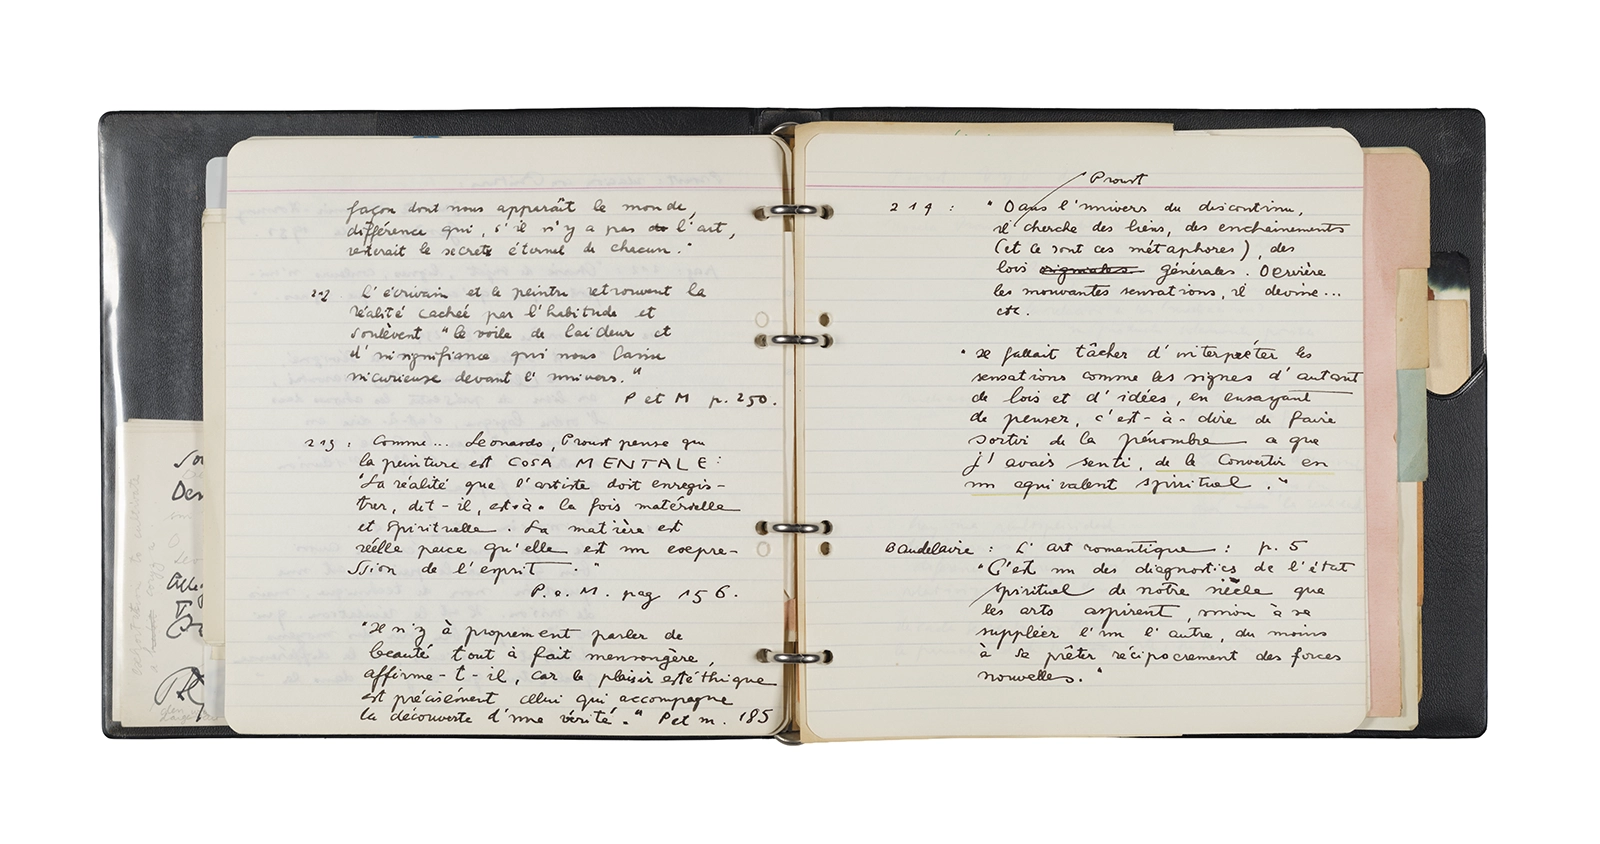 façon dont nous apparaît le monde,
différence qui, s'il n'y a pas de l'art,
resterait le secrete éternel de chacun."
217 L'écrivain et le peintre retrouvent la
réalité cachée par l'habitude et
soulèvent "le voile de laideur et
d'insignifiance qui nous laisse
incurieuse devant l'univers."
P et M p. 250.
219 : Comme... Leonardo, Proust pense que
la peinture est COSA MENTALE :
"La réalité que l'artiste doit enregis-
trer, dit-il, est à la fois matérielle
et spirituelle. La matière est
réelle parce qu'elle est un expre-
ssion de l'esprit."
P. e. M. pag 156.
"Il n'y à proprement parler de
beauté tout à fait mensongère,
affirme-t-il, car le plaisir estéthique
est précisément celui qui accompagne
la découverte d'une vérité." P et M. 185
Proust
219 : "Dans l'univers du discontinu,
il cherche des liens, des enchaînements
(et ce sont ces métaphores), des
lois générales. Derrière
les mouvantes sensations, il devine...
etc.
"Il fallait tâcher d'interpréter les
sensations comme les signes d'autant
de lois et d'idées, en essayant
de penser, c'est-à-dire de faire
sortir de la pénombre ce que
j'avais senti, de le convertir en
un equivalent spirituel."
Baudelaire : L'art romantique : p. 5
"C'est un des diagnostics de l'état
spirituel de notre siècle que
les arts aspirent, sinon à se
suppléer l'un l'autre, du moins
à se prêter récipocrement des forces
nouvelles."